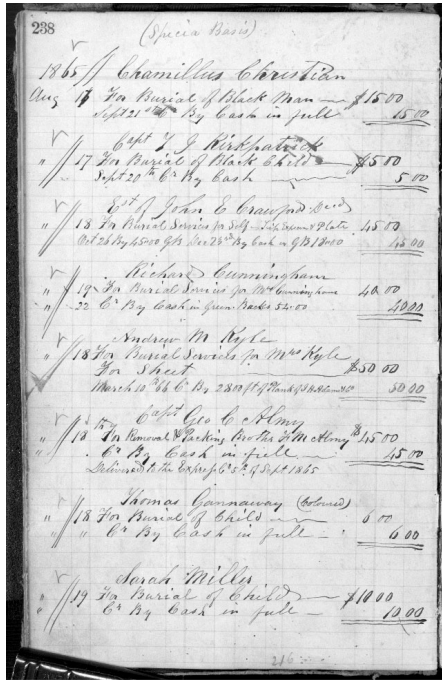 238
(Specie Basis)
1865 // Chamillus Christian
Aug 17 For Burial of Black Man — $15 00
Sept 21st Cr By Cash in full 15 00
Capt T J Kirkpatrick
" 17 For Burial of Black Child — $5 00
Sept 20th Cr By Cash — 5 00
Est of John E Crawford Decd
18 For Burial Services for Self 45 00
Oct 26 By 45 00 GB Dec 23rd By Cash in GB 45 00
Richard Cunningham
" 19 For Burial Services for Mrs Cunningham 40 00
" 22 Cr By Cash in Green Backs 54 00 40 00
Andrew M Kyle
" 18 For Burial Services for Mrs Kyle
For Sheet $50 00
March 10th 66 Cr By 2800 ft of Plank of 50 00
Capt Geo C Almy
" 18 For Removal & Packing Brother Almy $45 00
" Cr By Cash in full — 45 00
Delivered to the Express Co 5th of Sept 1865
Thomas Gannaway (Coloured)
" 18 For Burial of Child — 6 00
" " Cr By Cash in full — 6 00
Sarah Miller
" 19 For Burial of Child — $10 00
" Cr By Cash in full — 10 00